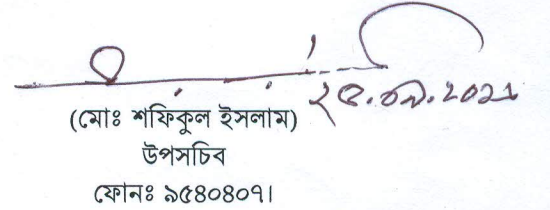 ২৫.০৯.২০২১
(মোঃ শফিকুল ইসলাম)
উপসচিব
ফোনঃ ৯৫৪০৪০৭।